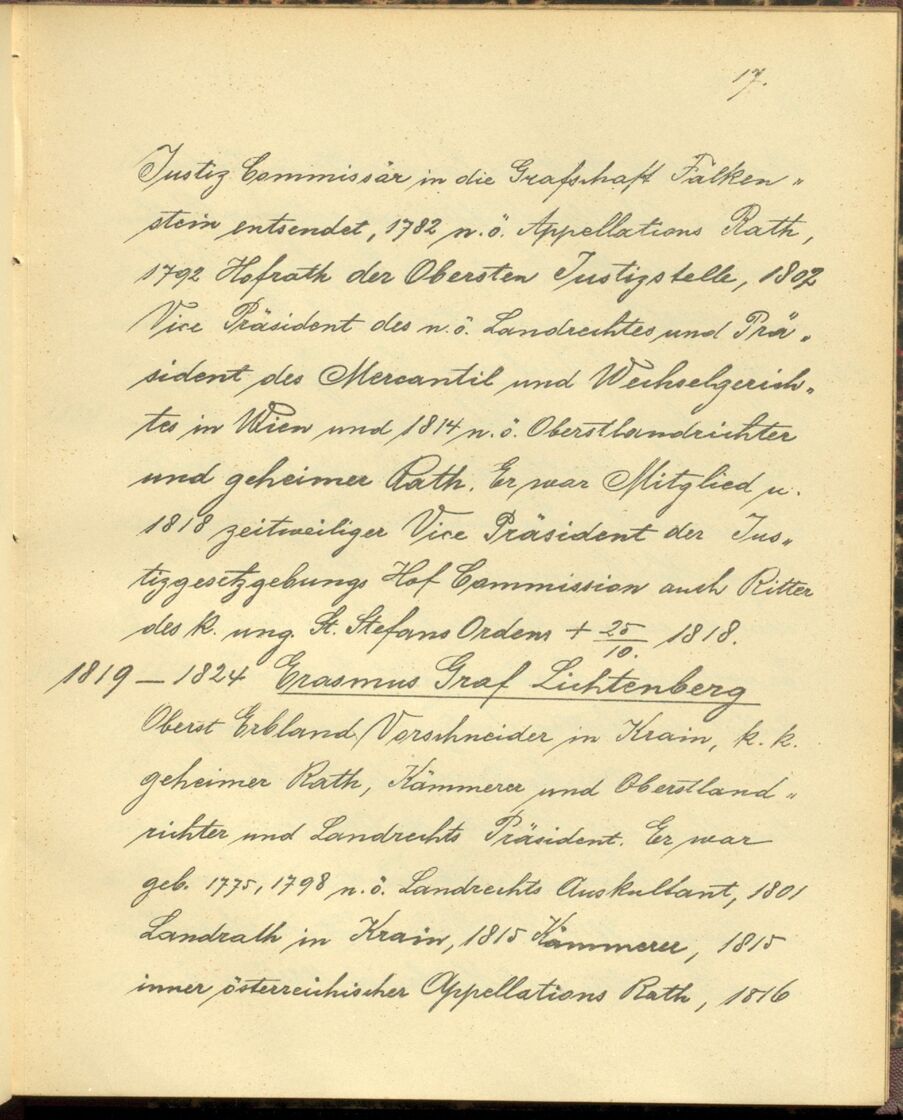 17.
Justiz Commissär in die Grafschaft Falken„
stein entsendet, 1782 n. ö. Appellations Rath,
1792 Hofrath der Obersten Justizstelle, 1802
Vice Präsident des n. ö. Landrechtes und Prä„
sident des Mercantil und Wechselgerich„
tes in Wien und 1814 n. ö. Oberstlandrichter
und geheimer Rath. Er war Mitglied u.
1818 zeitweiliger Vice Präsident der Jus„
tizgesetzgebungs Hof Commission auch Ritter
des k. ung. St. Stefans Ordens + 25/10. 1818.
1819 – 1824 Erasmus Graf Lichtenberg
Oberst Erbland Vorschneider in Krain, k. k.
geheimer Rath, Kämmerer und Oberstland„
richter und Landrechts Präsident. Er war
geb. 1775, 1798 n. ö. Landrechts Auskultant, 1801
Landrath in Krain, 1815 Kämmerer, 1815
inner österreichischer Appellations Rath, 1816